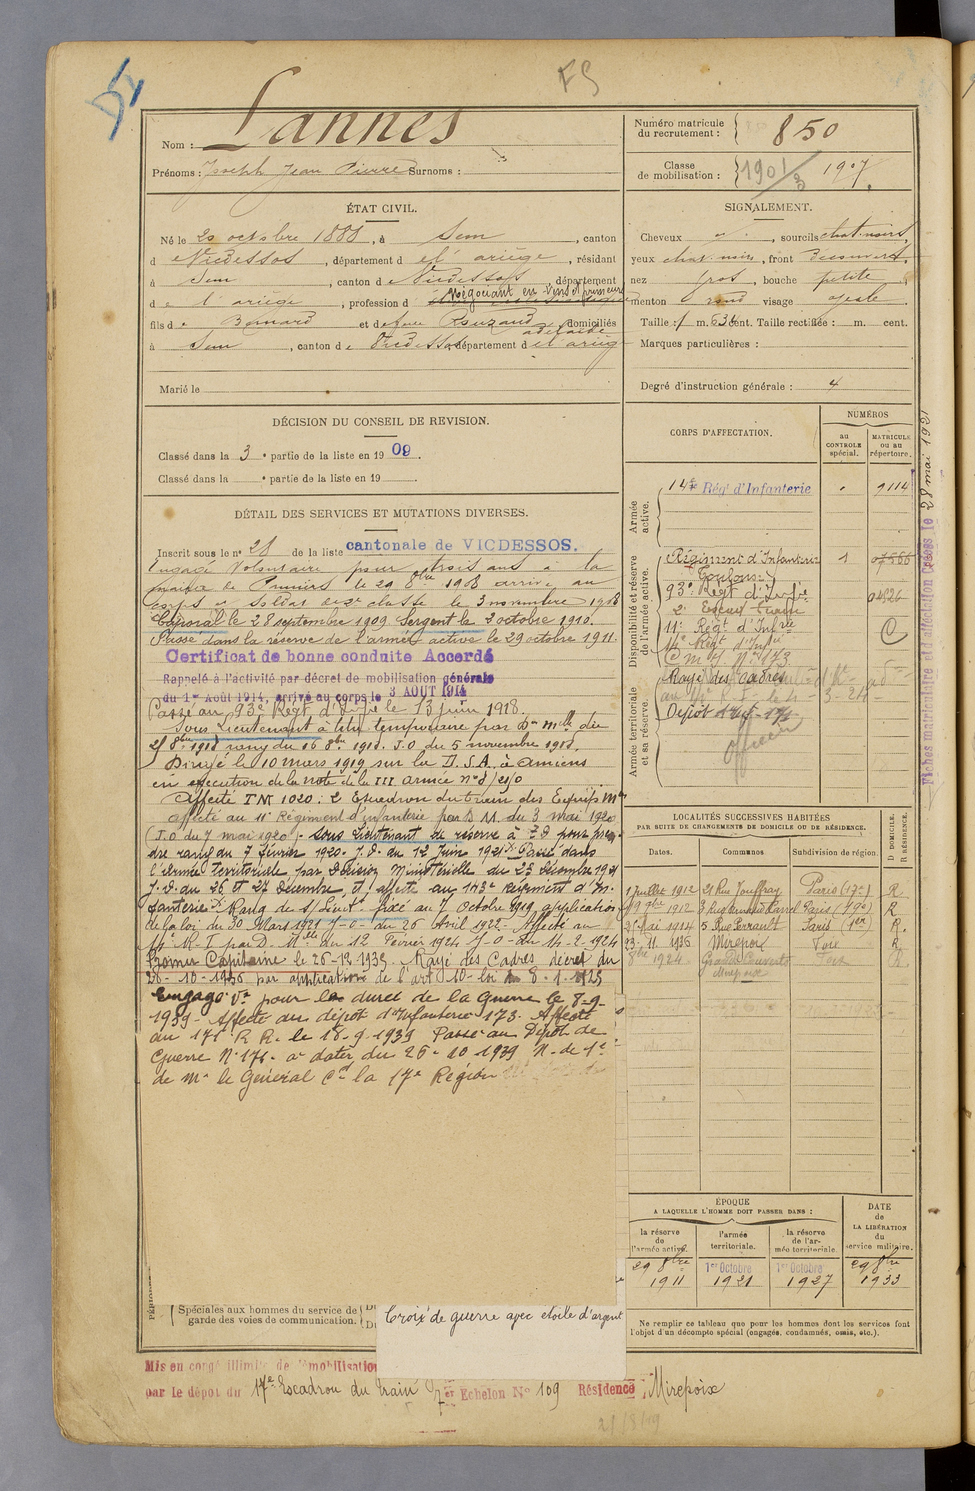 FS
Nom : Lannes
Prénoms : Joseph Jean Pierre Surnoms :
Numéro matricule du recrutement : 850
Classe de mobilisation : 1901/3 1907.
ÉTAT CIVIL.
Né le 20 octobre 1888, à Sem, canton
d e Vicdessos, département d e l'ariège, résidant
à Sem, canton d e Vicdessos, département
Négociant en Vins et primeurs
d e l'ariège, profession d
fils d e Bernard et de feue Rouzaud adelaïde domiciliés
à Sem, canton d e Vicdessos, département d e l'arièg
Marié le
SIGNALEMENT.
Cheveux, sourcils chat. noirs,
yeux chat. noirs, front découvert,
nez gros, bouche petite
menton rond visage ovale
Taille : 1 m. 636 cent. Taille rectifiée : m. cent.
Marques particulières :
Degré d'instruction générale : 4
DÉCISION DU CONSEIL DE REVISION.
Classé dans la 3e partie de la liste en 1909.
Classé dans la e partie de la liste en 19
DÉTAIL DES SERVICES ET MUTATIONS DIVERSES.
Inscrit sous le n° 28 de la liste cantonale de VICDESSOS.
Engagé Volontaire pour trois ans à la
mairie de Pamiers le 29 8bre 1908 arrivé au
corps et soldat de 2e classe le 3 novembre 1908
Caporal le 28 septembre 1909 Sergent le 2 octobre 1910.
Passé dans la réserve de l'armée active le 29 octobre 1911.
Certificat de bonne conduite Accordé
Rappelé à l'activité par décret de mobilisation générale
du 1er Août 1914, arrivé au corps le 3 AOUT 1914
Passé au 93e Régt d'Infie le 13 juin 1918.
Sous lieutenant à titre temporaire par Don mlle du
28 8bre 1918 rang du 16 8bre 1918. J.O du 5 novembre 1918.
Dirigé le 10 mars 1919 sur la D.S.A. à Amiens
en execution de la note de la III armée
Affecté TM 1020 : 2 Escadron du train des Equip Mres
affecté au 11e Régiment d'infanterie par D M. du 3 mai 1920
(J.O du 7 mai 1920). Sous Lieutenant de réserve à T.D pour pren-
dre rang du 7 février 1920. J.O. du 12 Juin 1921 Passé dans
l'armée territoriale par Décision Ministérielle du 23 Décembre 1921
J.O. du 26 et 27 Décembre, et affecté au 143e Régiment d'In-
fanterie Rang de S/Lieut. fixé au 7 Octobre 1919 application
de la loi du 30 Mars 1921 J-O- du 26 Avril 1922- Affecté au
14e R.I par D. Mlle du 12 Février 1924 J-O- du 14-2-1924
Nommé Capitaine le 25-12-1935 Rayé des Cadres décret du
26-10-1936 par application de l'art 10-loi du 8-1-1925
Engagé Vre pour la durée de la Guerre le 8-9-
1939- Affecté au dépôt d'Infanterie 173- Affecté
au 171 R R. le 18-9-1939 Passé au Dépôt de
Guerre N° 171- à dater du 26-10-1939 N- de Se
de Mr le Général Ct la 17e Région
CORPS D'AFFECTATION.
NUMÉROS
au CONTROLE spécial.
MATRICULE ou au répertoire.
Armée active.
14e Régt d'Infanterie 9114
Disponibilité et réserve de l'armée active.
Régiment d'Infanterie 1
Toulouse
93e Régt d'Infie
2e Escad train
11e Régt d'Infie C
14e Régt d'Infie
C m I. N° 173
Armée territoriale et sa réserve.
Rayé des Cadres
Dépôt
officier
Fiches matriculaire et d'affectation créées le 28 mai 1921
LOCALITÉS SUCCESSIVES HABITÉES
PAR SUITE DE CHANGEMENTS DE DOMICILE OU DE RÉSIDENCE.
Dates. Communes Subdivision de région. D DOMICILE. R RÉSIDENCE.
1 Juillet 1912 21 Rue Jouffroy Paris (17e) R
9 9bre 1912 3 Rue Armand Carrel Paris (19e) R
25 Mai 1914 5 Rue Perrault Paris (1er) R.
23-11 1936 Mirepoix Foix R
8bre 1924 Grand Couvert Foix R
Mirepoix
ÉPOQUE
A LAQUELLE L'HOMME DOIT PASSER DANS :
la réserve de l'armée active.
l'armée territoriale.
la réserve de l'armée territoriale.
DATE de LA LIBÉRATION du service militaire.
29 8bre 1911
1er Octobre 1921
1er Octobre 1927
29 8bre 1933
Ne remplir ce tableau que pour les hommes dont les services font
l'objet d'un décompte spécial (engagés, condamnés, omis, etc.).
Spéciales aux hommes du service de
garde des voies de communication.
Croix de guerre avec étoile d'argent
Mis en congé illimité de démobilisation
par le dépôt du 17e Escadron du train 7er Echelon N° 109 Résidence : Mirepoix
21/8/19